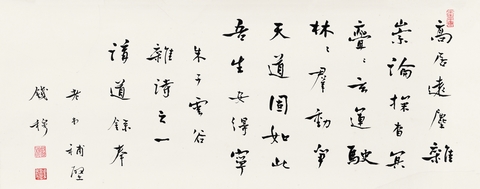 高居遠塵雜
崇論探杳冥
亹〻玄運駛
林〻羣動爭
天道固如此
吾生安得寧
朱子雲谷
雜詩之一
講道錄奉
補壁
錢穆